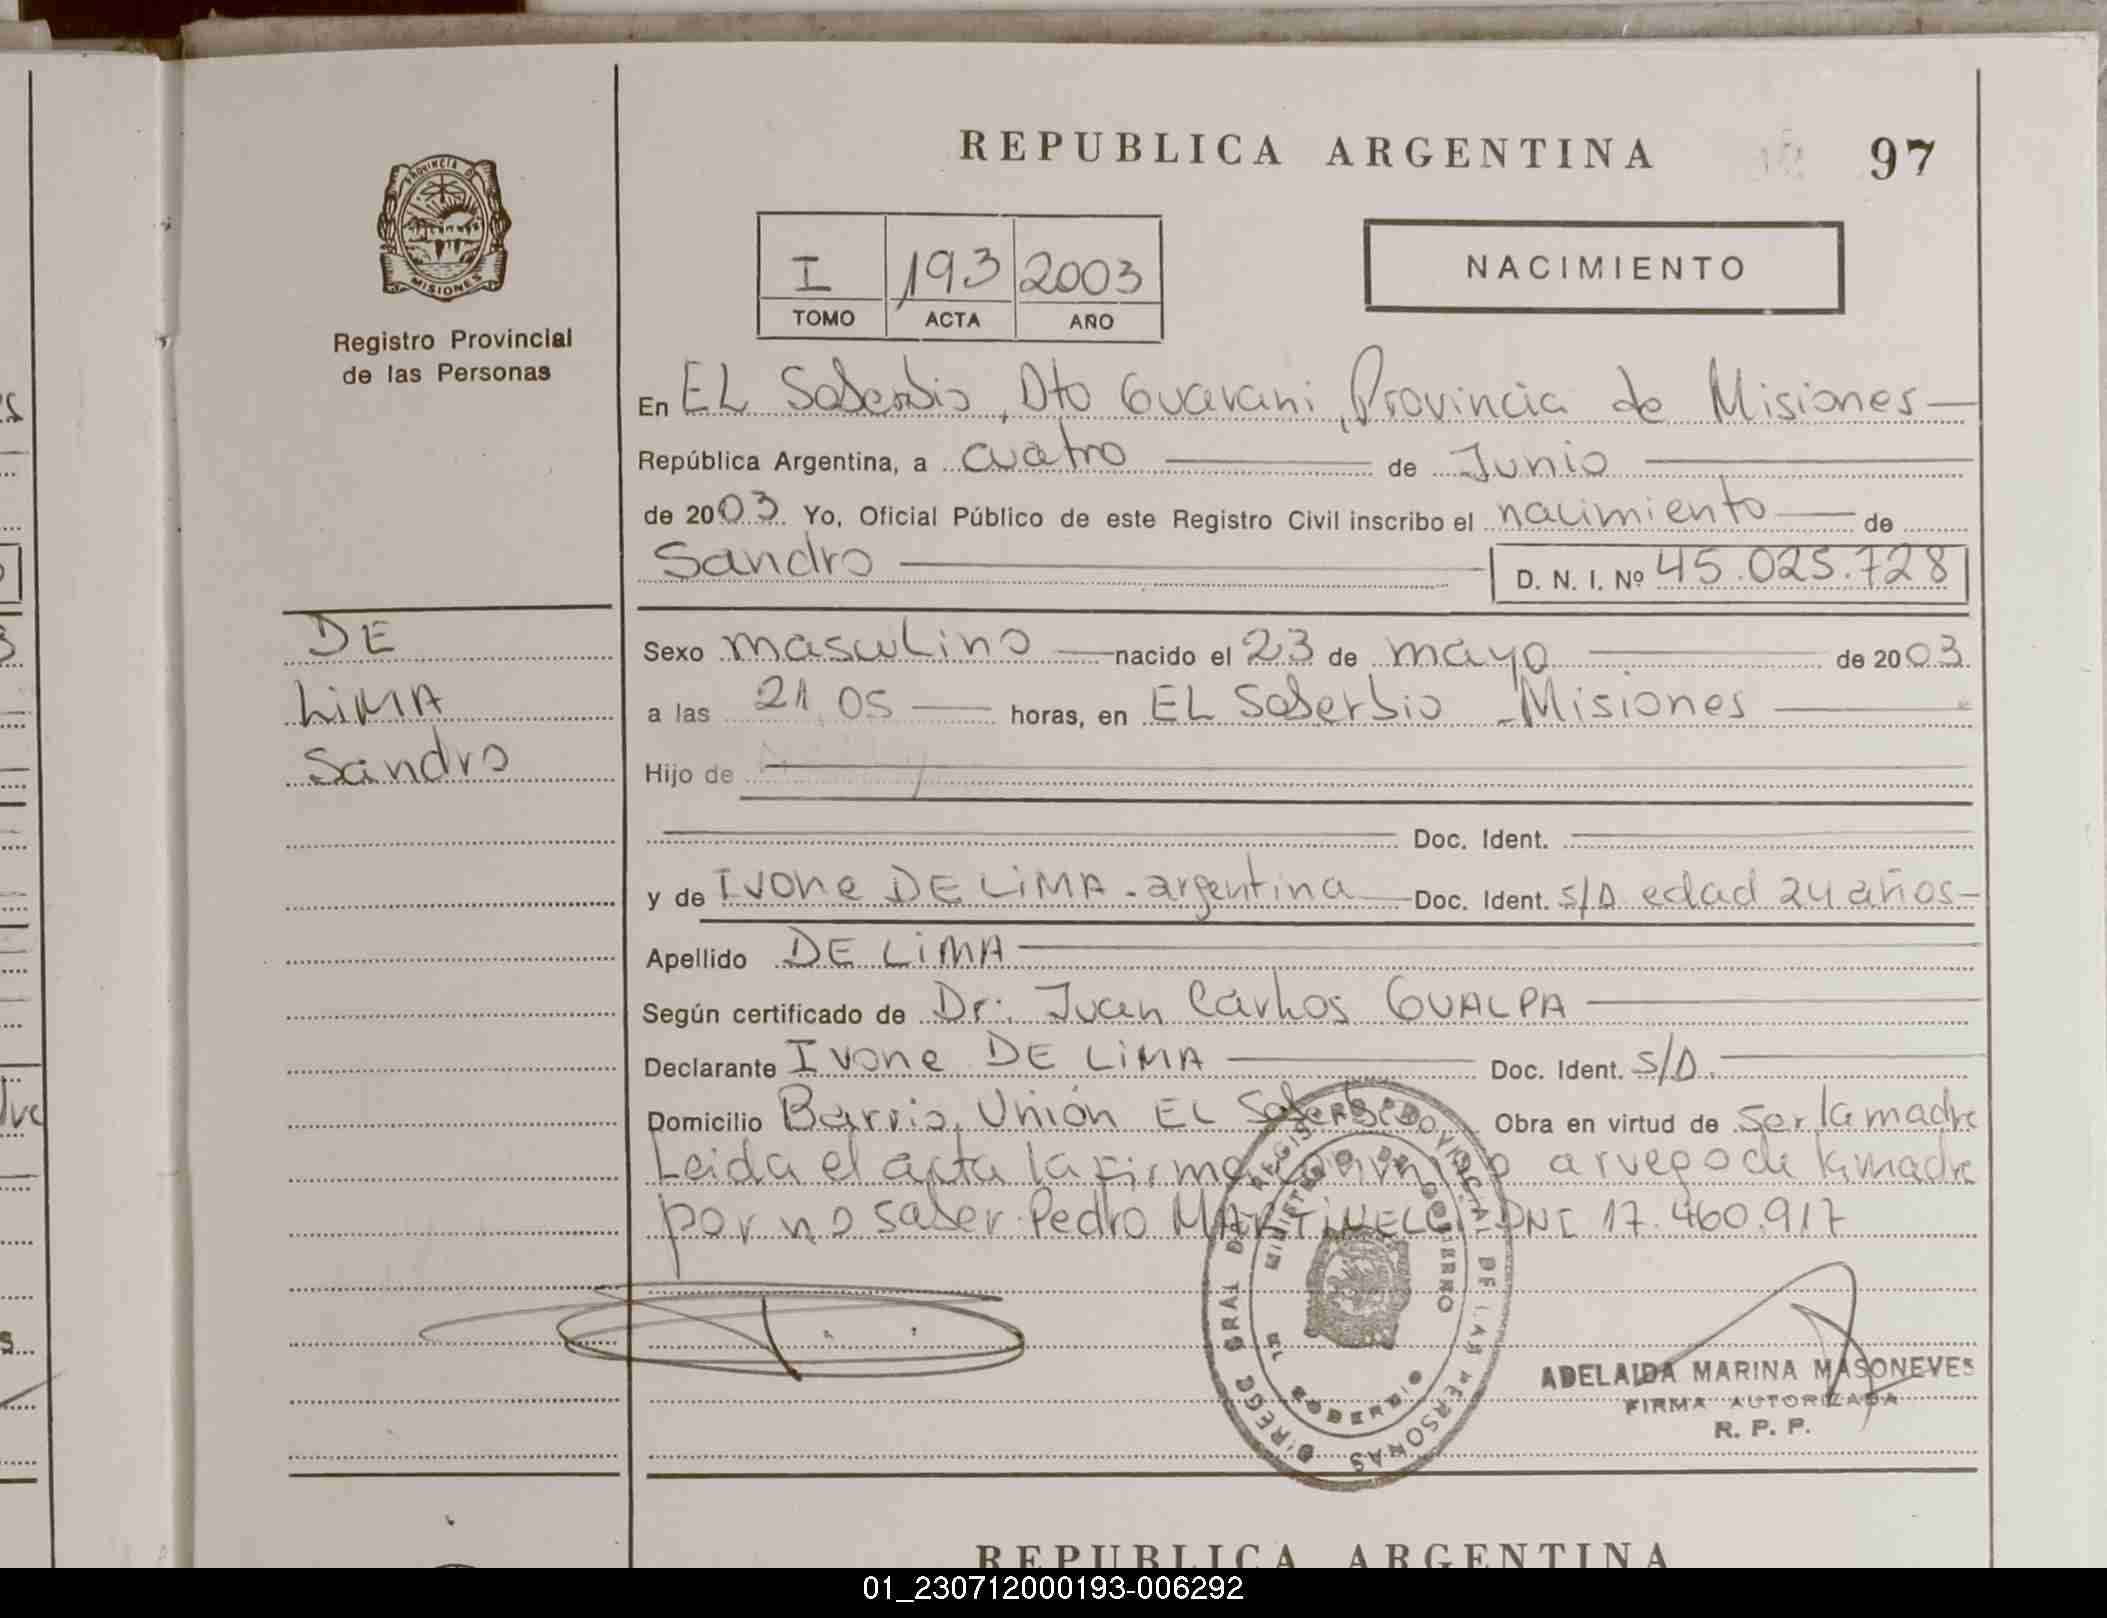 REPUBLICA ARGENTINA 97
PROVINCIA DE
MISIONES
Registro Provincial
de las Personas
I 193 2003
TOMO ACTA AÑO
NACIMIENTO
En EL Soberbio, Dto Guarani, Provincia de Misiones
República Argentina, a cuatro de Junio
de 2003. Yo, Oficial Público de este Registro Civil inscribo el nacimiento de
Sandro D. N. I. Nº 45.025.728
DE
LiMA
Sandro
Sexo masculino nacido el 23 de mayo de 2003.
a las 21,05 horas, en EL Soberbio - Misiones
Hijo de
Doc. Ident.
y de Ivone DE LiMA - argentina Doc. Ident. S/D. edad 24 años
Apellido DE LiMA
Según certificado de Dr. Juan Carlos GUALPA
Declarante Ivone DE LiMA Doc. Ident. S/D.
Domicilio Barrio Unión EL Soberbio Obra en virtud de ser la madre
Leida el acta la firma a ruego de la madre
por no saber. Pedro MARTiNELLI DNI 17.460.917
DIRECC GRAL DEL REGISTRO PROVINCIAL DE LAS PERSONAS
MINISTERIO DE GOBIERNO
EL SOBERBIO
ADELAIDA MARINA MASONEVES
FIRMA AUTORIZADA
R. P. P.
REPUBLICA ARGENTINA
01_230712000193-006292